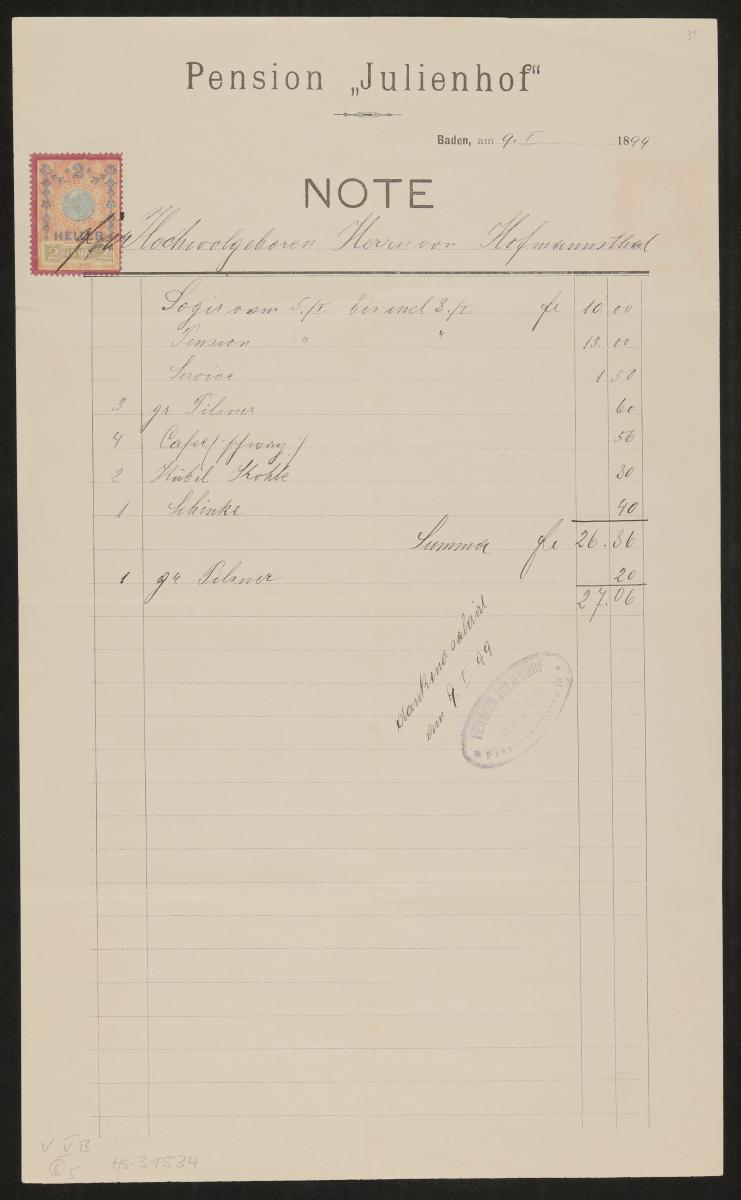 35
Pension „Julienhof“
Baden, am 9. I. 1899
2
HELLER
NOTE
Hochwolgeboren Herrn von Hofmannsthal
Logis vom 5./I. bis incl 8./I. fl 10. 00
Pension " " 13. 00
Service 1 50
3 gr Pilsner 60
4 Cafee 56
2 Kübel Kohle 80
1 Schinke 40
Summa fl 26.86
1 gr Pilsner 20
27.06
dankend saldirt
am 9. I. 99
PENSION JULIENHOF
BADEN
V V B
6 5
HS-31534